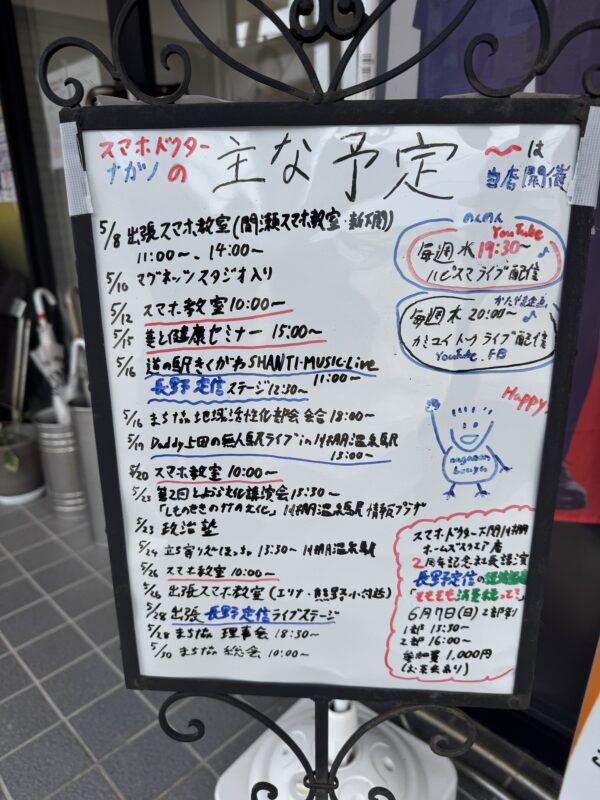 スマホドクター
ナガノの
主な予定
〜は
当店開催
5/8 出張スマホ教室(間瀬スマホ教室・新下関)
11:00〜、14:00〜
5/10 マグネッツスタジオ入り
5/12 スマホ教室 10:00〜
5/15 美と健康セミナー 15:00〜
5/16 道の駅きくがわSHANTI-MUSIC-Live
11:00〜
長野定信ステージ12:30〜
5/16 まち協 地域活性化部会 会合 18:00〜
5/19 Daddy上田の無人駅ライブin川棚温泉駅
13:00〜
5/20 スマホ教室 10:00〜
5/23 第2回とようら文化講演会13:30〜
川棚温泉 情報プラザ
5/23 政治塾
5/24 立ち寄りズぽっちゃ 13:30〜川棚温泉駅
5/26 スマホ教室 10:00〜
出張スマホ教室(エリナ・熊野小付近)
5/28 出張 長野定信ライブステージ
5/28 まち協 理事会 18:30〜
5/30 まち協 総会 10:00〜
のんのん
YouTube
毎週水 19:30〜
ハピスマライブ配信
毎週木 20:00〜
カミコイトークライブ配信
YouTube、FB
Happy!
nagasan
bouya
スマホ・ドクター下関川棚
ホームズスクエア店
2周年記念社長講演
長野定信の
「そもそも消費税って
6月7日(日) 2部制
1部 13:30〜
2部 16:00〜
参加費 1,000円
(お茶会あり)